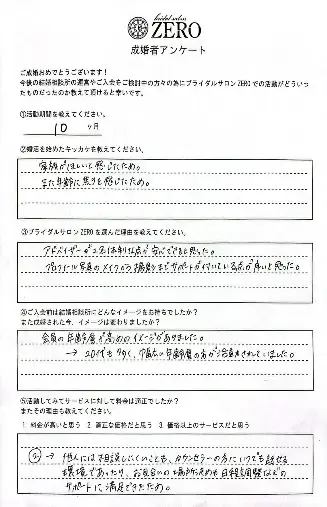 bridal salon
ZERO
成婚者アンケート
ご成婚おめでとうございます!
今後の結婚相談所の運営やご入会をご検討中の方々の為にブライダルサロンZEROでの活動がどういっ
たものだったのか教えて頂けると幸いです。
①活動期間を教えてください。
10 ヶ月
②婚活を始めたキッカケを教えてください。
家族がほしいと感じたため。
また年齢に焦りを感じたため。
③ブライダルサロンZEROを選んだ理由を教えてください。
アドバイザーが2名体制は点が安心できると思った。
プロフィール写真のメイクから撮影までサポートが付いている点が良いと思った。
④ご入会前は結婚相談所にどんなイメージをお持ちでしたか?
また成婚された今、イメージは変わりましたか?
会員の年齢層が高めのイメージがありました。
→ 20代も多く、幅広い年齢層の方が活動されていました。
⑤活動してみてサービスに対して料金は適正でしたか?
またその理由も教えてください。
1. 料金が高いと思う 2. 適正な価格だと思う 3. 価格以上のサービスだと思う
② → 他人には相談しにくいことも、カウンセラーの方にいつでも話せる
環境であったり、お見合いの場所決めも日程調整などの
サポートに満足できたため。